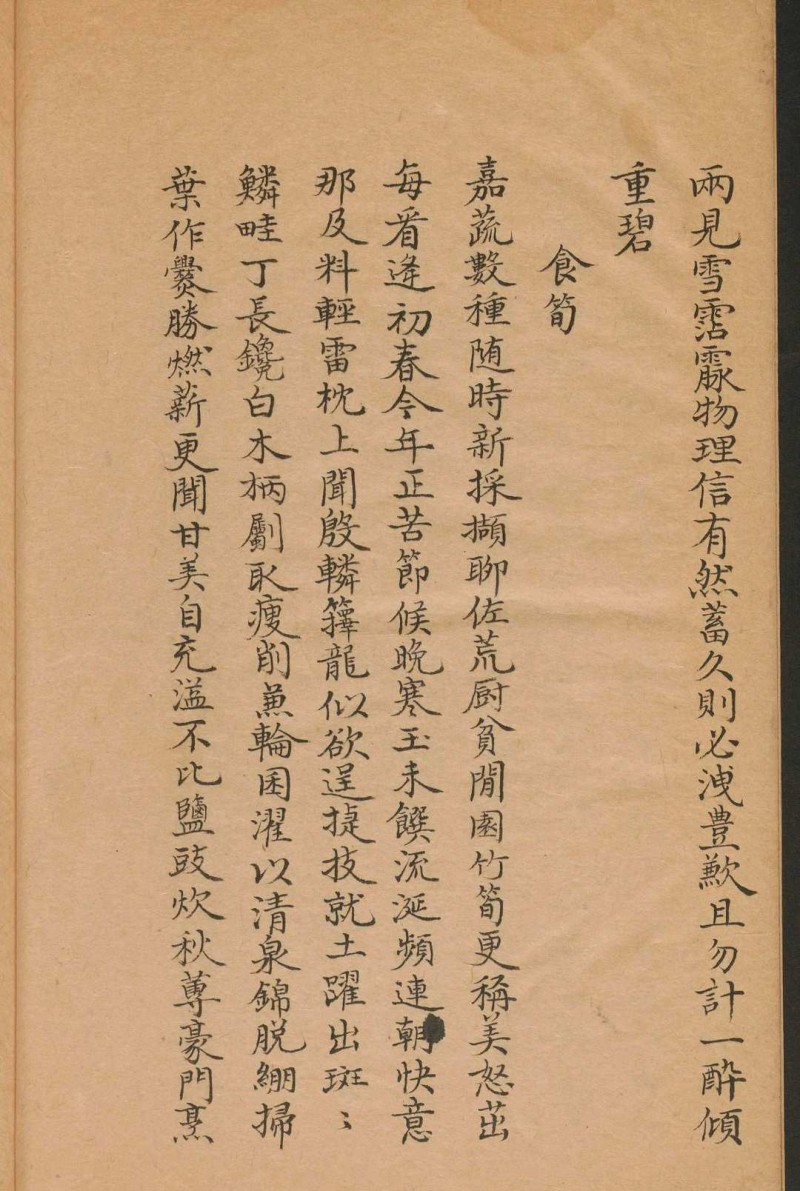 兩見雪霑霡物理信有然蓄久則必洩豊歉且勿計一醉傾
重碧
食筍
嘉蔬數種随時新採擷聊佐荒厨貧閒園竹筍更稱美怒茁
每看逢初春今年正苦節候晚寒玉未饌流涎頻連朝快意
那及料輕雷枕上聞殷轔籜龍似欲逞捷技就土躍出斑〻
鱗畦丁長鑱白木柄劚取瘦削兼輪囷濯以清泉錦脱綳掃
葉作爨勝燃薪更聞甘美自充溢不比鹽豉炊秋蓴豪門烹